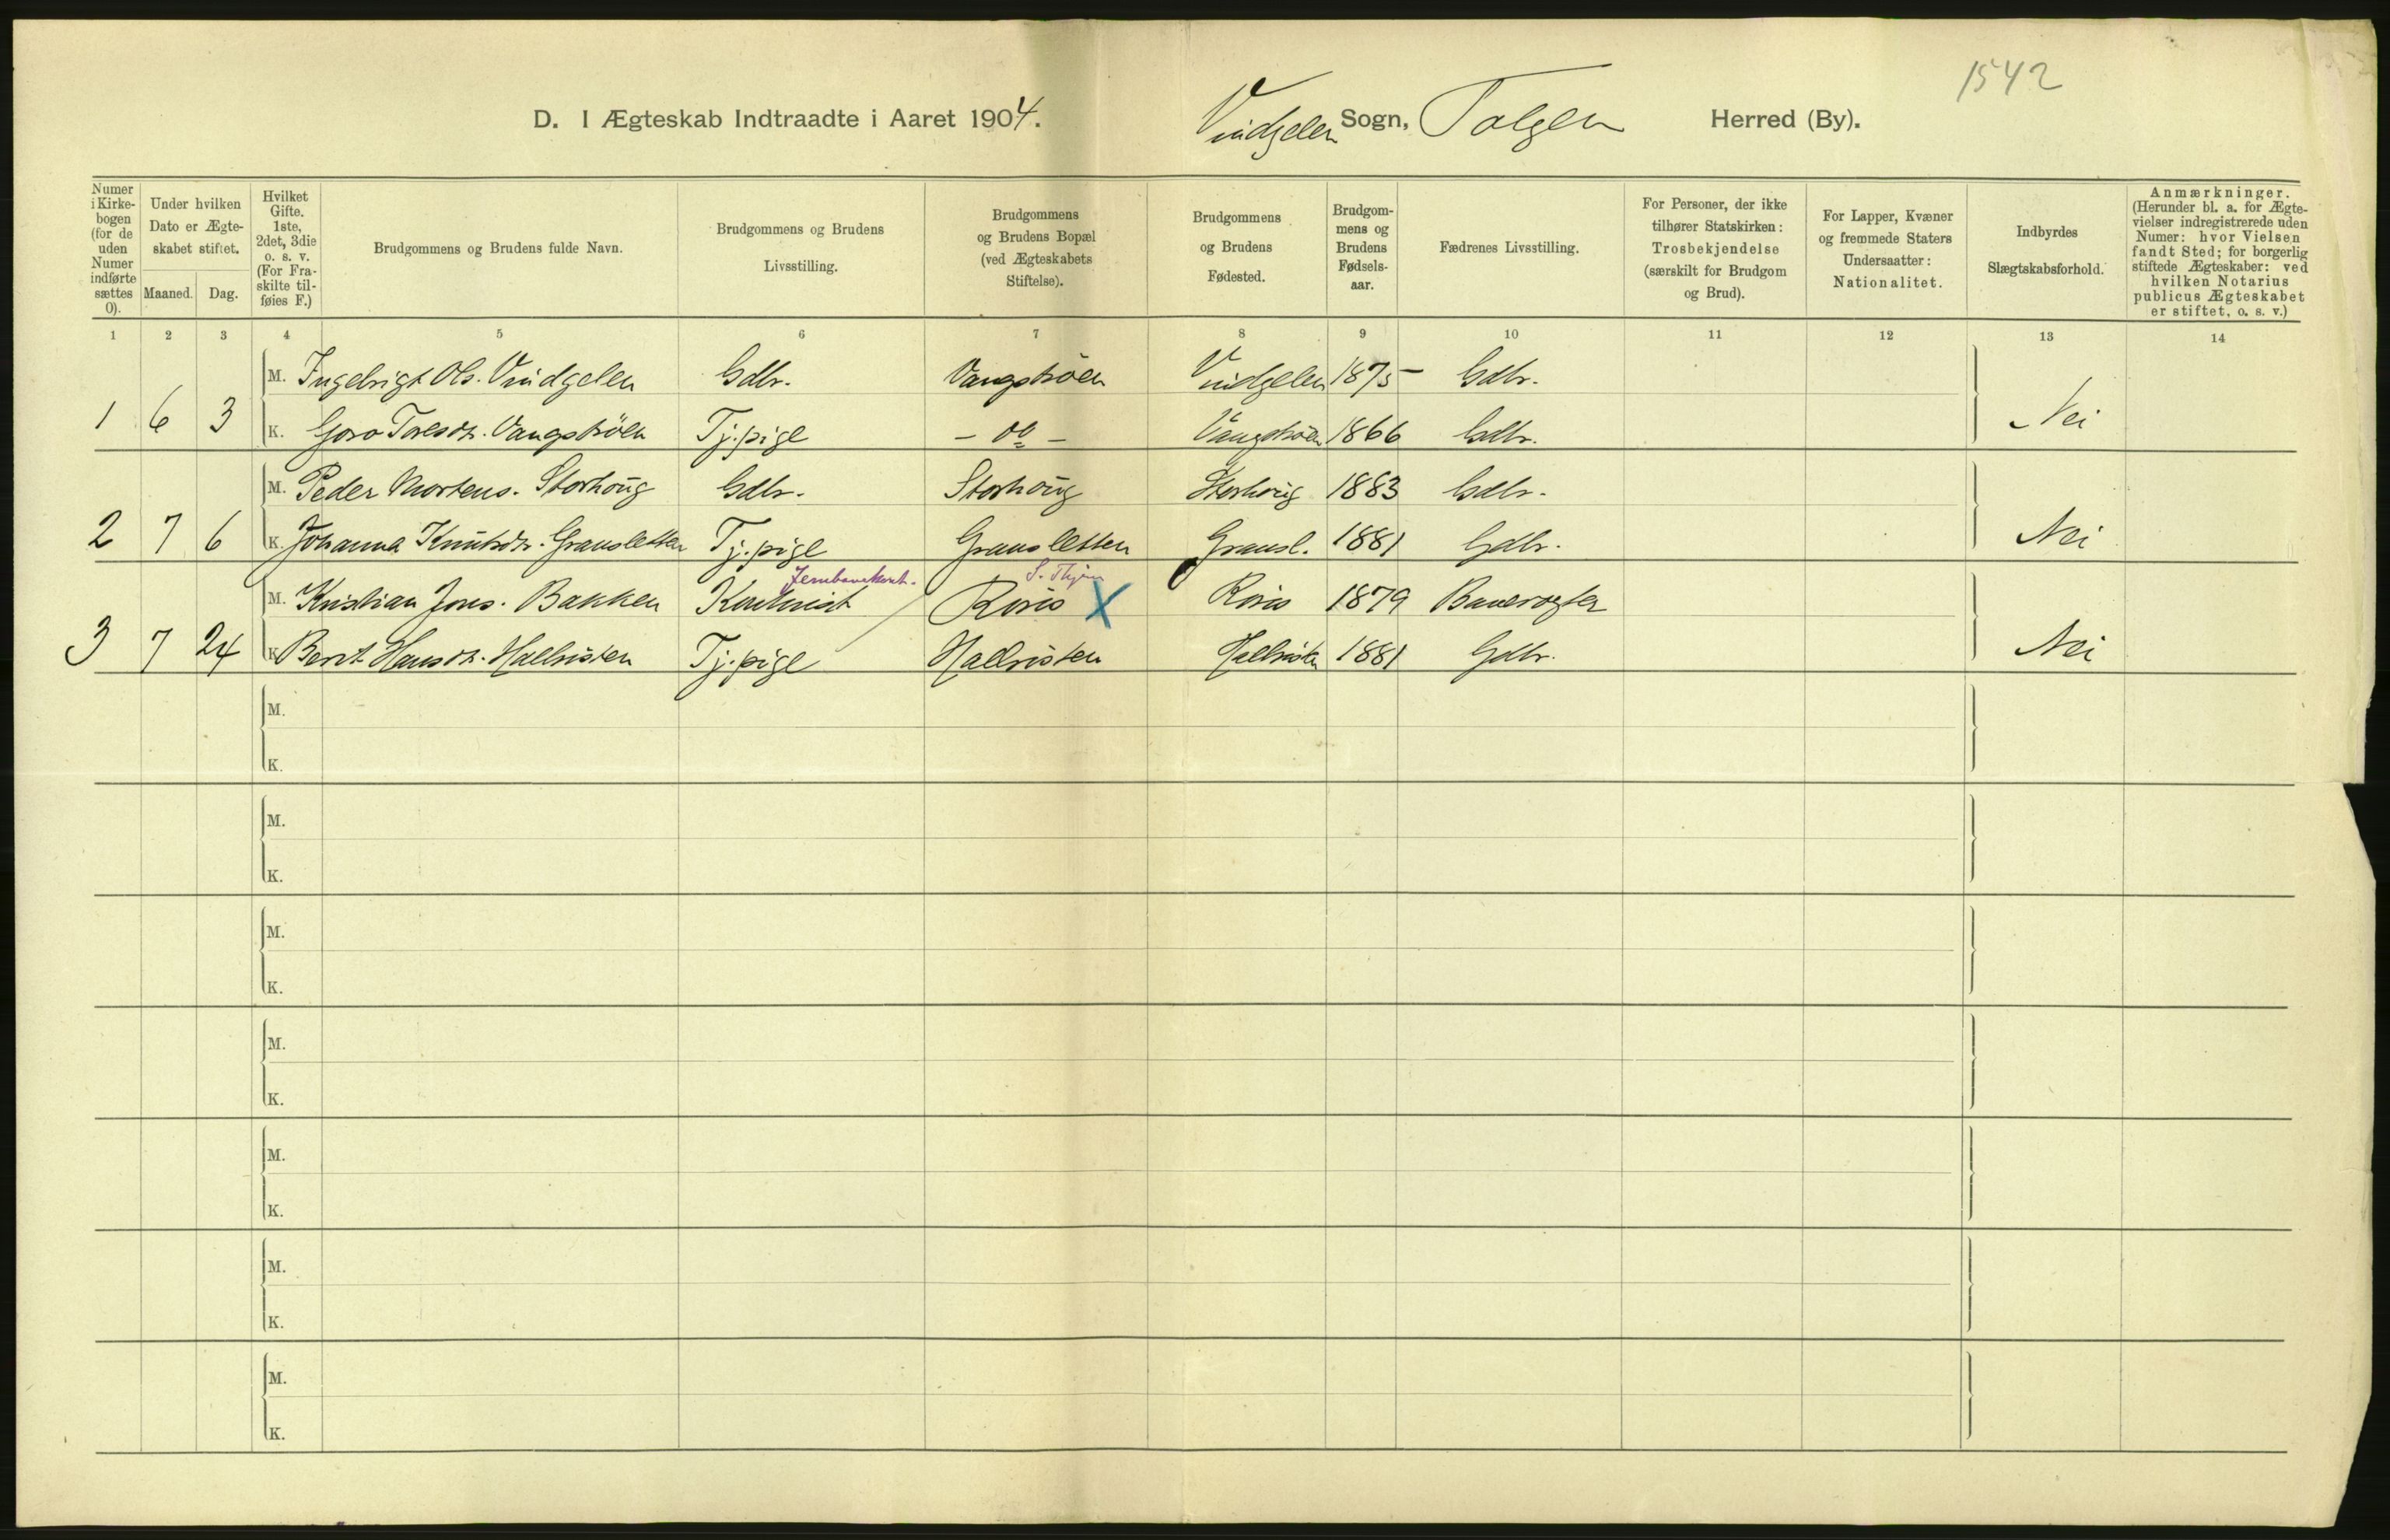 1542
D. I Ægteskab Indtraadte i Aaret 1904. Vindgelen Sogn, Tolgen Herred (By).
Numer i Kirke- bogen (for de uden Numer indførte sættes 0).
Under hvilken Dato er Ægte- skabet stiftet.
Maaned. Dag.
Hvilket Gifte. 1ste, 2det, 3die o. s. v. (For Fra- skilte til- føies F.)
Brudgommens og Brudens fulde Navn.
Brudgommens og Brudens Livsstilling.
Brudgommens og Brudens Bopæl (ved Ægteskabets Stiftelse).
Brudgommens og Brudens Fødested.
Brudgom- mens og Brudens Fødsels- aar.
Fædrenes Livsstilling.
For Personer, der ikke tilhører Statskirken: Trosbekjendelse (særskilt for Brudgom og Brud).
For Lapper, Kvæner og fremmede Staters Undersaatter: Nationalitet.
Indbyrdes Slægtskabsforhold.
Anmærkninger. (Herunder bl. a. for Ægte- vielser indregistrerede uden Numer: hvor Vielsen fandt Sted; for borgerlig stiftede Ægteskaber: ved hvilken Notarius publicus Ægteskabet er stiftet, o. s. v.)
1 2 3 4 5 6 7 8 9 10 11 12 13 14
M. Ingebrigt Ols. Vindgelen Gdbr. Vangstrøen Vindgelen 1875 Gdbr.
1 6 3 K. Goro Toresdr. Vangstrøen Tj.pige - do - Vangstrøen 1866 Gdbr. Nei
M. Peder Mortens. Storhoug Gdbr. Storhoug Storhoug 1883 Gdbr.
2 7 6 K. Johanna Knutsdr. Gransletten Tj.pige Gransletten Gransl. 1881 Gdbr. Nei
M. Kristian Jons. Bakken Røros X Røros 1879 Banevogter
3 7 24 K. Berit Hansdr. Hallristen Tj.pige Hallristen Hallristen 1881 Gdbr. Nei
M.
K.
M.
K.
M.
K.
M.
K.
M.
K.
M.
K.
M.
K.